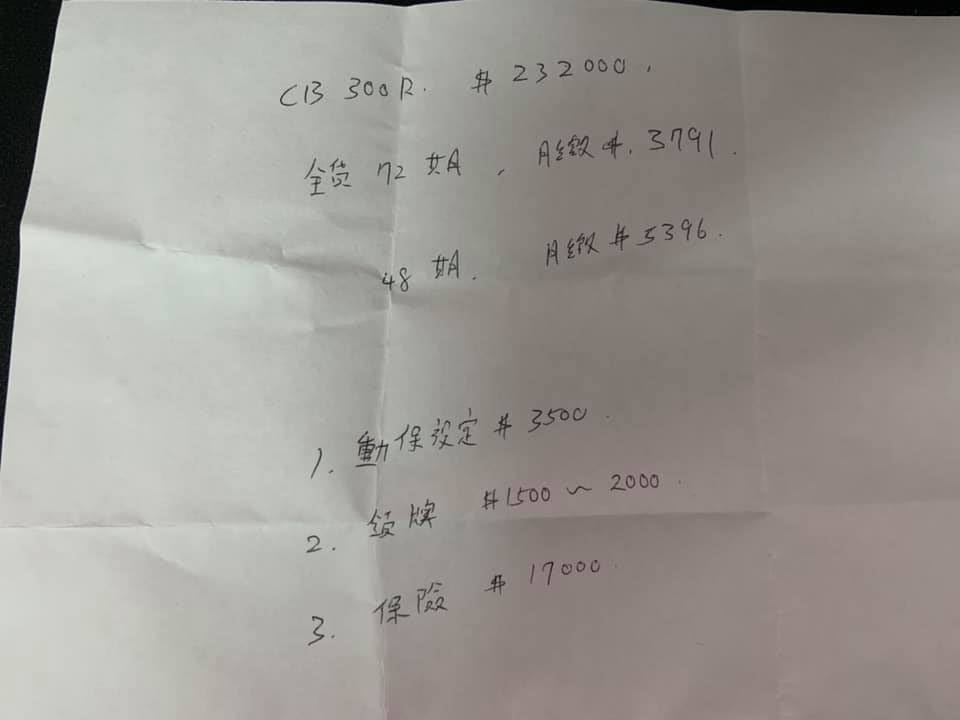 CB 300R. $232000.
全貸 72期, 月繳 $. 3791.
48期. 月繳 $5396.
1. 動保設定 $3500.
2. 領牌 $1500 ~ 2000.
3. 保險 $17000.